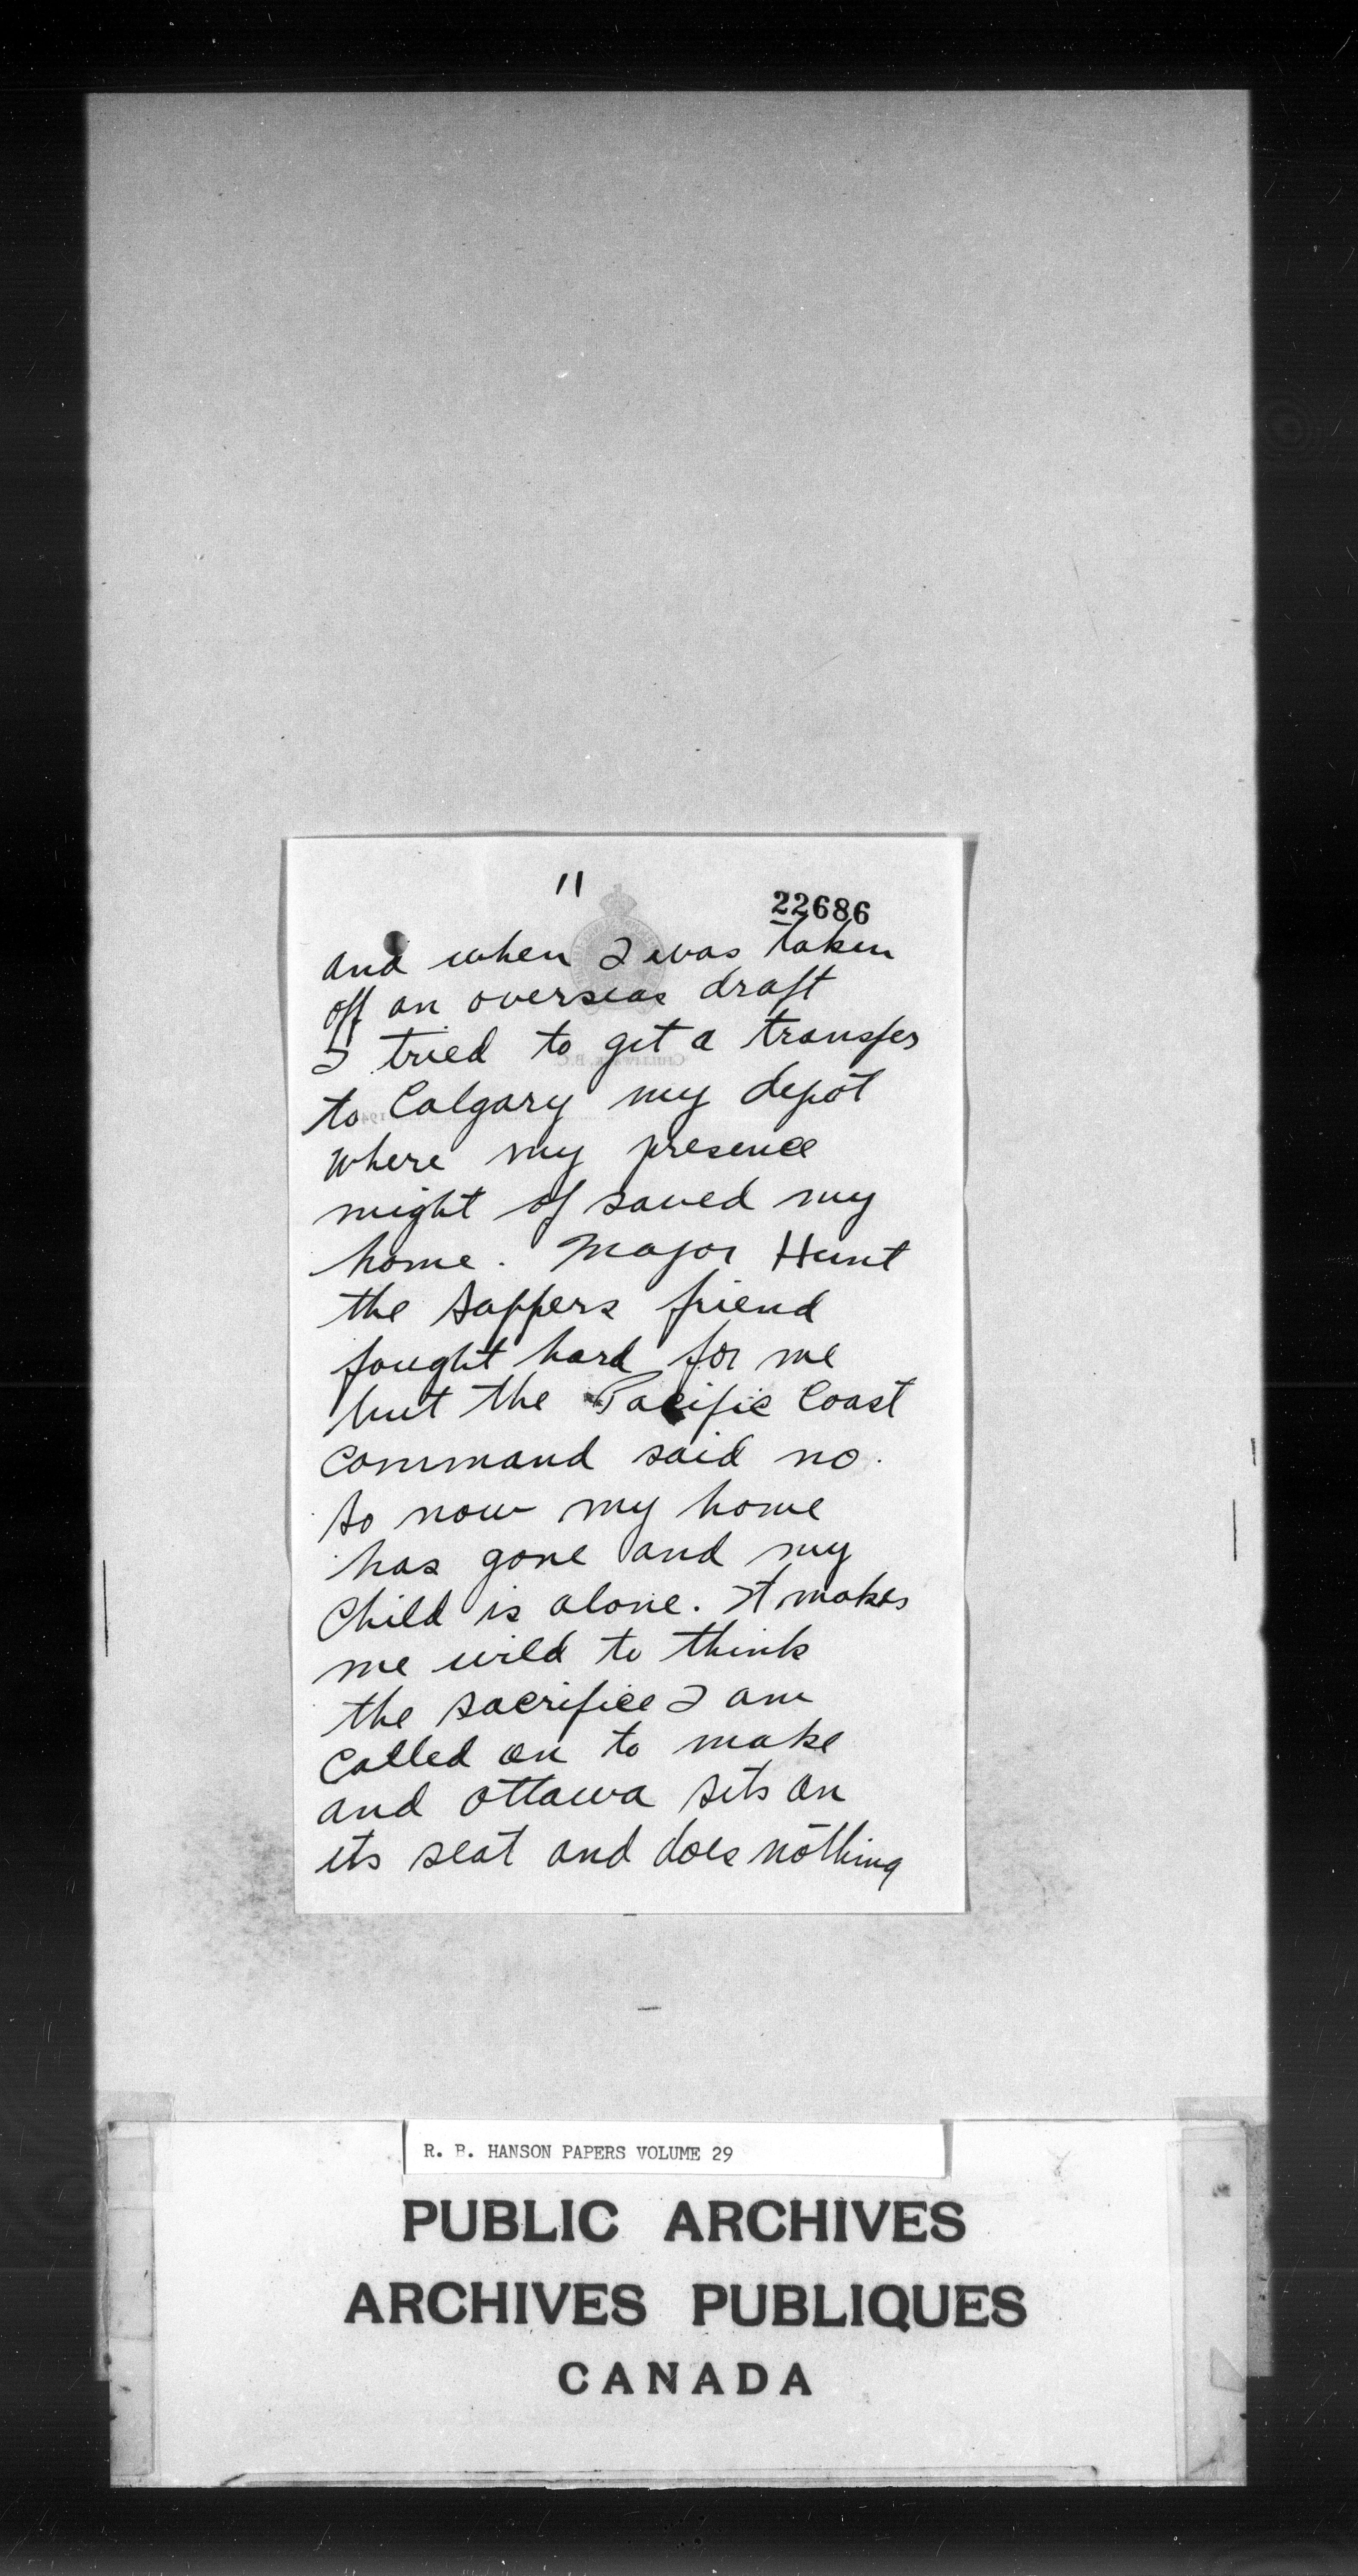 11
22686
and when I was taken
off an overseas draft
I tried to get a transfer
to Calgary my depot
where my presence
might of saved my
home. Major Hunt
the sappers friend
fought hard for me
but the Pacific Coast
command said no.
So now my home
has gone and my
Child is alone. It makes
me wild to think
the sacrifice I am
called on to make
and Ottawa sits on
its seat and does nothing
R. B. HANSON PAPERS VOLUME 29
PUBLIC ARCHIVES
ARCHIVES PUBLIQUES
CANADA